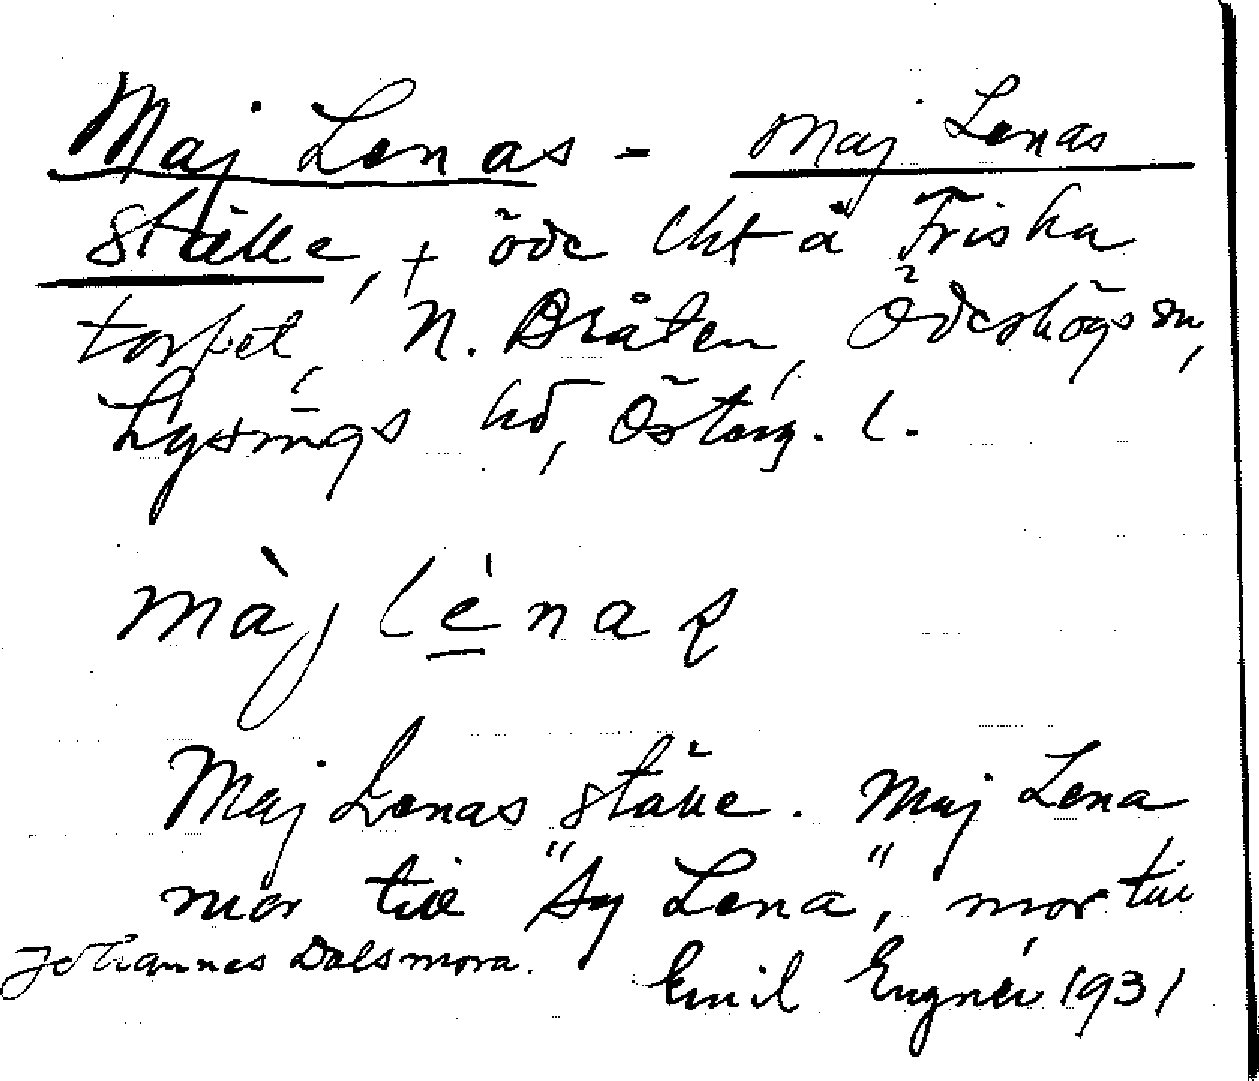 Maj Lenas - Maj Lenas
ställe, + öde lht å Friska
torpet, N. Bråten, Ödeshögs sn,
Lysings hd, Österg. l.
màj lénaʀ
Maj Lenas ställe. Maj Lena
mor till "Sy Lena", mor till
Johannes Dalsmora. Emil Engnér 1931